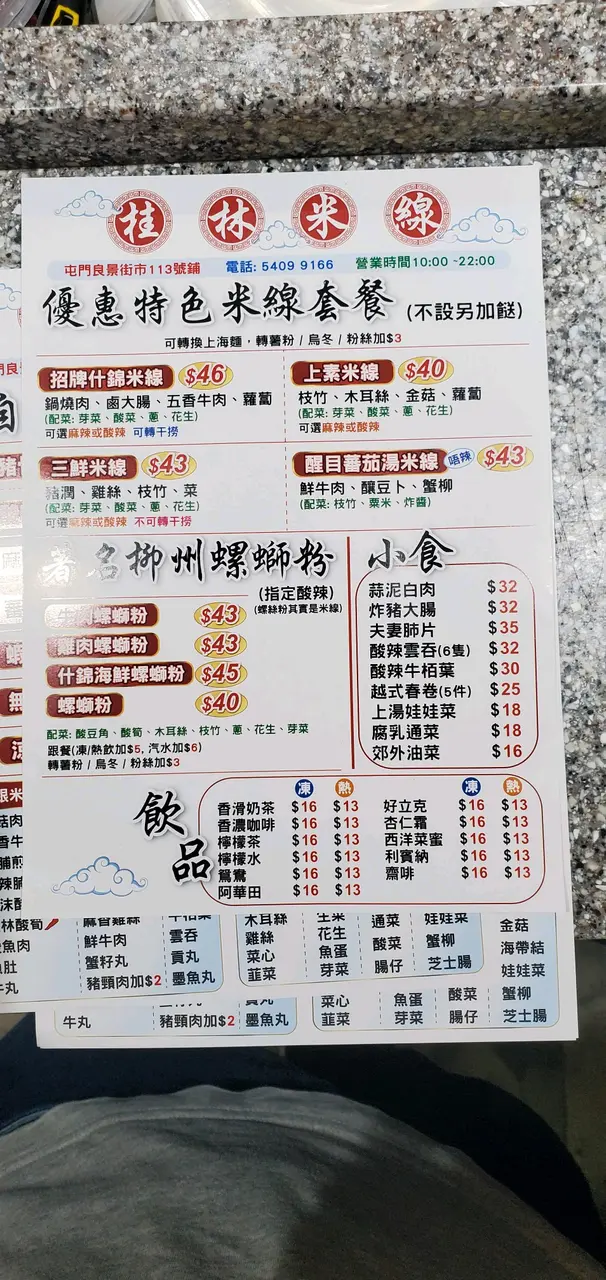 桂林米線
屯門良景街市113號鋪 電話: 5409 9166 營業時間10:00 -22:00
優惠特色米線套餐 (不設另加餸)
可轉換上海麵，轉薯粉 / 烏冬 / 粉絲加$3
招牌什錦米線 $46
鍋燒肉、鹵大腸、五香牛肉、蘿蔔
(配菜: 芽菜、酸菜、蔥、花生)
可選麻辣或酸辣 可轉干撈
上素米線 $40
枝竹、木耳絲、金菇、蘿蔔
(配菜: 芽菜、酸菜、蔥、花生)
可選麻辣或酸辣
三鮮米線 $43
豬潤、雞絲、枝竹、菜
(配菜: 芽菜、酸菜、蔥、花生)
可選麻辣或酸辣 不可轉干撈
醒目蕃茄湯米線 唔辣 $43
鮮牛肉、釀豆卜、蟹柳
(配菜: 枝竹、粟米、炸醬)
著名柳州螺螄粉
(指定酸辣)
(螺絲粉其實是米線)
牛肉螺螄粉 $43
雞肉螺螄粉 $43
什錦海鮮螺螄粉 $45
螺螄粉 $40
配菜: 酸豆角、酸筍、木耳絲、枝竹、蔥、花生、芽菜
跟餐(凍/熱飲加$5, 汽水加$6)
轉薯粉 / 烏冬 / 粉絲加$3
小食
蒜泥白肉 $32
炸豬大腸 $32
夫妻肺片 $35
酸辣雲吞(6隻) $32
酸辣牛栢葉 $30
越式春卷(5件) $25
上湯娃娃菜 $18
腐乳通菜 $18
郊外油菜 $16
飲品
凍 熱
香滑奶茶 $16 $13
香濃咖啡 $16 $13
檸檬茶 $16 $13
檸檬水 $16 $13
鴛鴦 $16 $13
阿華田 $16 $13
凍 熱
好立克 $16 $13
杏仁霜 $16 $13
西洋菜蜜 $16 $13
利賓納 $16 $13
齋啡 $16 $13
麻香雞絲 牛栢葉 木耳絲 生菜 通菜 娃娃菜 金菇
鮮牛肉 雲吞 雞絲 花生 酸菜 蟹柳 海帶結
蟹籽丸 貢丸 菜心 魚蛋 腸仔 芝士腸 娃娃菜
豬頸肉加$2 墨魚丸 韮菜 芽菜
菜心 魚蛋 酸菜 蟹柳
牛丸 豬頸肉加$2 墨魚丸 韮菜 芽菜 腸仔 芝士腸